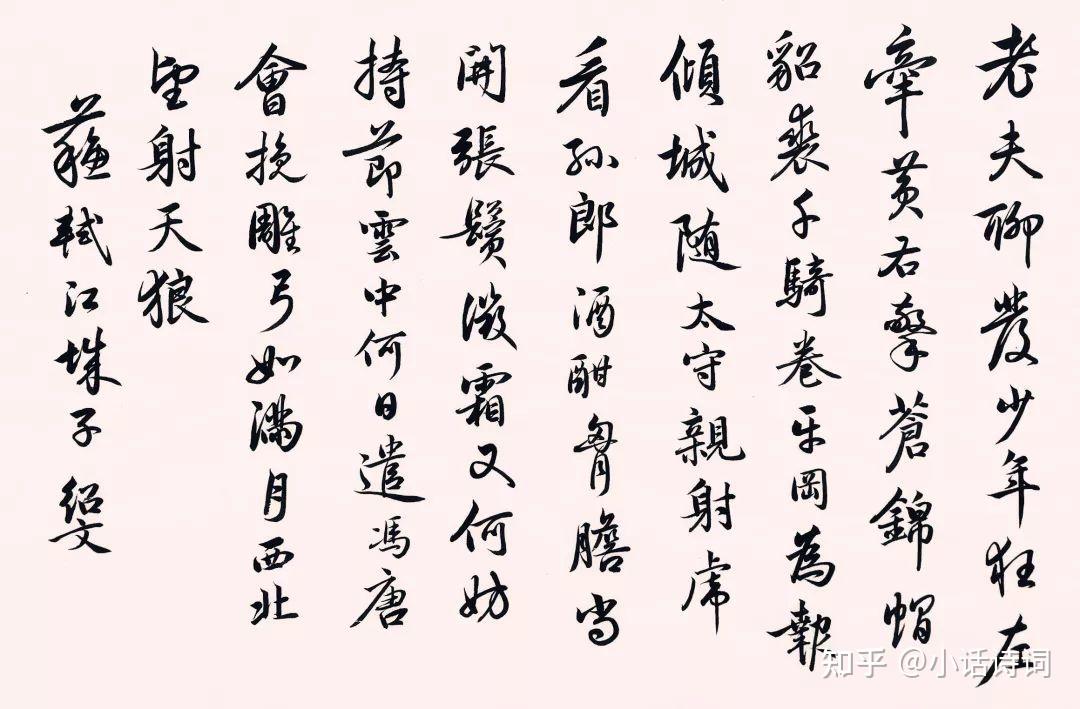 老夫聊發少年狂左
牽黄右擎蒼錦帽
貂裘千騎卷平岡為報
傾城随太守親射虎
看孫郎酒酣胷膽尚
開張鬢微霜又何妨
持節雲中何日遣馮唐
會挽雕弓如滿月西北
望射天狼
蘇軾江城子 紹文
知乎 @小话诗词